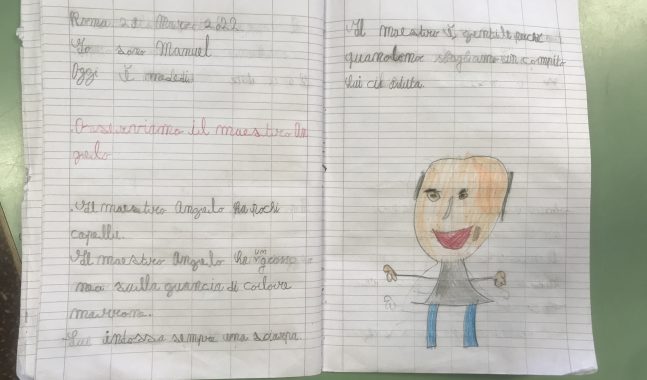 Roma 2 Marzo 2022
Io sono Manuel
Oggi È
Osserviamo il maestro An
gelo
Il maestro Angelo ha pochi
capelli.
Il maestro Angelo ha un
sulla guancia di colore
marrone.
Lui indossa sempre una sciarpa.
Il maestro È gentile perché
quando noi sbagliamo un compito
lui ci aiuta.